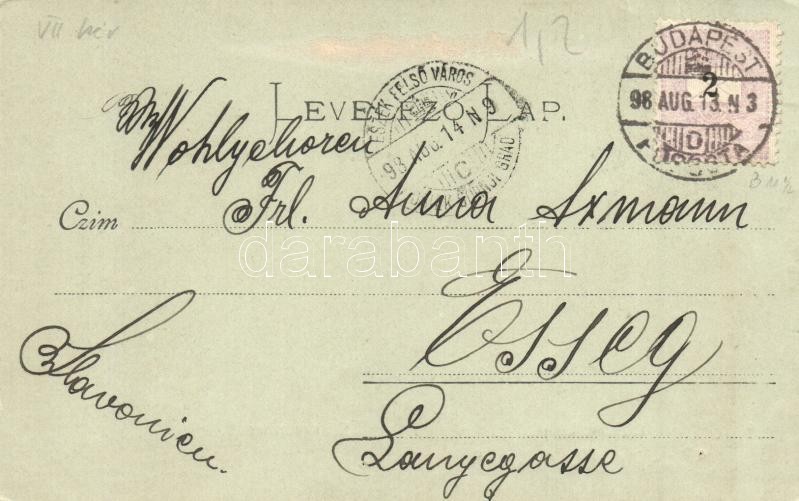 VII ker
1,2
BUDAPEST
98 AUG. 13. N 3
D
2
ESZÉK FELSŐ VÁROS
98 AUG. 14 N 9
C
GRAD
LEVELEZŐ LAP.
Wohlgeboren
Czim Frl. Anna Axmann
darabanth
Esseg
Slavonien.
Langegasse
B 11½